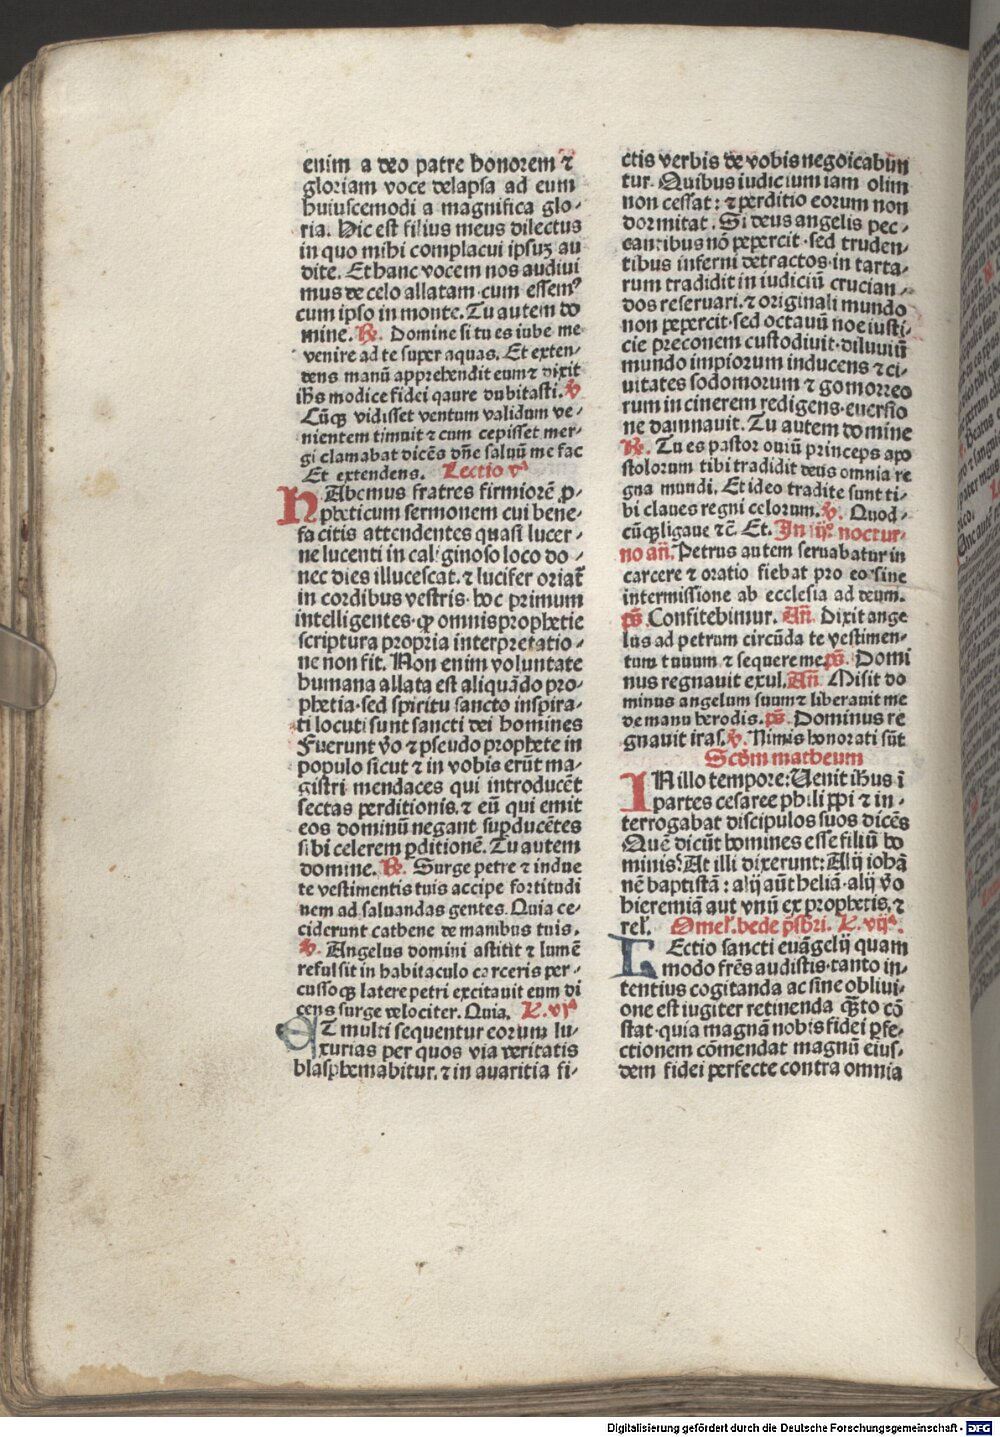 enim a deo patre honorem ⁊
gloriam voce delapsa ad eum
huiuscemodi a magnifica glo-
ria. Hic est filius meus dilectus
in quo mihi complacui ipsuꝫ au
dite. Et hanc vocem nos audiui
mus de celo allatam·cum essem⁹
cum ipso in monte. Tu autem do
mine. ℟. Domine si tu es iube me
venire ad te super aquas. Et exten-
dens manū apprehendit eum ⁊ dixit
ihs modice fidei qaure dubitasti. ℣
Cūqꝫ vidisset ventum validum ve-
nientem timuit ⁊ cum cepisset mer-
gi clamabat dicēs dn̄e saluū me fac
Et extendens. Lectio vᵃ
HAbemus fratres firmiorē ꝓ-
pheticum sermonem cui bene-
facitis attendentes quasi lucer-
ne lucenti in caliginoso loco do-
nec dies illucescat. ⁊ lucifer oriat̄
in cordibus vestris·hoc primum
intelligentes·ꝙ omnis prophetie
scriptura propria interpretatio-
ne non fit. Non enim voluntate
humana allata est aliquādo pro-
phetia·sed spiritu sancto inspira-
ti locuti sunt sancti dei homines
Fuerunt v̄o ⁊ pseudo prophete in
populo sicut ⁊ in vobis erūt ma-
gistri mendaces qui introducēt
sectas perditionis. ⁊ eū qui emit
eos dominū negant suꝑducētes
sibi celerem ꝑditionē. Tu autem
domine. ℟. Surge petre ⁊ indue
te vestimentis tuis accipe fortitudi
nem ad saluandas gentes. Quia ce-
ciderunt cathene de manibus tuis.
℣. Angelus domini astitit ⁊ lumē
refulsit in habitaculo carceris per-
cussoqꝫ latere petri excitauit eum di
cens surge velociter. Quia. L. vjᵃ
ET multi sequentur eorum lu-
xurias per quos via veritatis
blasphemabitur. ⁊ in auaritia fi-
ctis verbis de vobis negoicabūn
tur. Quibus iudicium iam olim
non cessat: ⁊ perditio eorum non
dormitat. Si deus angelis pec-
cantibus nō pepercit·sed truden-
tibus inferni detractos·in tarta-
rum tradidit in iudiciū crucian-
dos reseruari. ⁊ originali mundo
non pepercit·sed octauū noe iusti-
cie preconem custodiuit·diluuiū
mundo impiorum inducens ⁊ ci-
uitates sodomorum ⁊ gomorreo
rum in cinerem redigens·euersio
ne damnauit. Tu autem domine
℟. Tu es pastor ouiū princeps apo
stolorum tibi tradidit deus omnia re
gna mundi. Et ideo tradite sunt ti-
bi claues regni celorum. ℣. Quod-
cūqꝫ ligaue ⁊c̄. Et. In iij⁰ noctur-
no an̄. Petrus autem seruabatur in
carcere ⁊ oratio fiebat pro eo sine
intermissione ab ecclesia ad deum.
ps̄. Confitebimur. An̄. Dixit ange
lus ad petrum circūda te vestimen-
tum tuum ⁊ sequere me. ps̄. Domi
nus regnauit exul. An̄ Misit do
minus angelum suum ⁊ liberauit me
de manu herodis. ps̄. Dominus re
gnauit iras. ℣. Nimis honorati sūt
Scd̄m matheum
IN illo tempore: Uenit ihus ī
partes cesaree philippi ⁊ in-
terrogabat discipulos suos dicēs
Quē dicūt homines esse filiū ho
minis? At illi dixerunt: Alij iohā
nē baptistā: alij aūt heliā·alij v̄o
hieremiā aut vnū ex prophetis. ⁊
rel'. Omel'. bede p̄sbri. L. vijᵃ.
LEctio sancti euāgelij quam
modo fr̄es audistis·tanto in-
tentius cogitanda ac sine obliui-
one est iugiter retinenda q̄ꝫto cō
stat·quia magnā nobis fidei ꝑfe-
ctionem cōmendat magnū eius-
dem fidei perfecte contra omnia
Digitalisierung gefördert durch die Deutsche Forschungsgemeinschaft - DFG